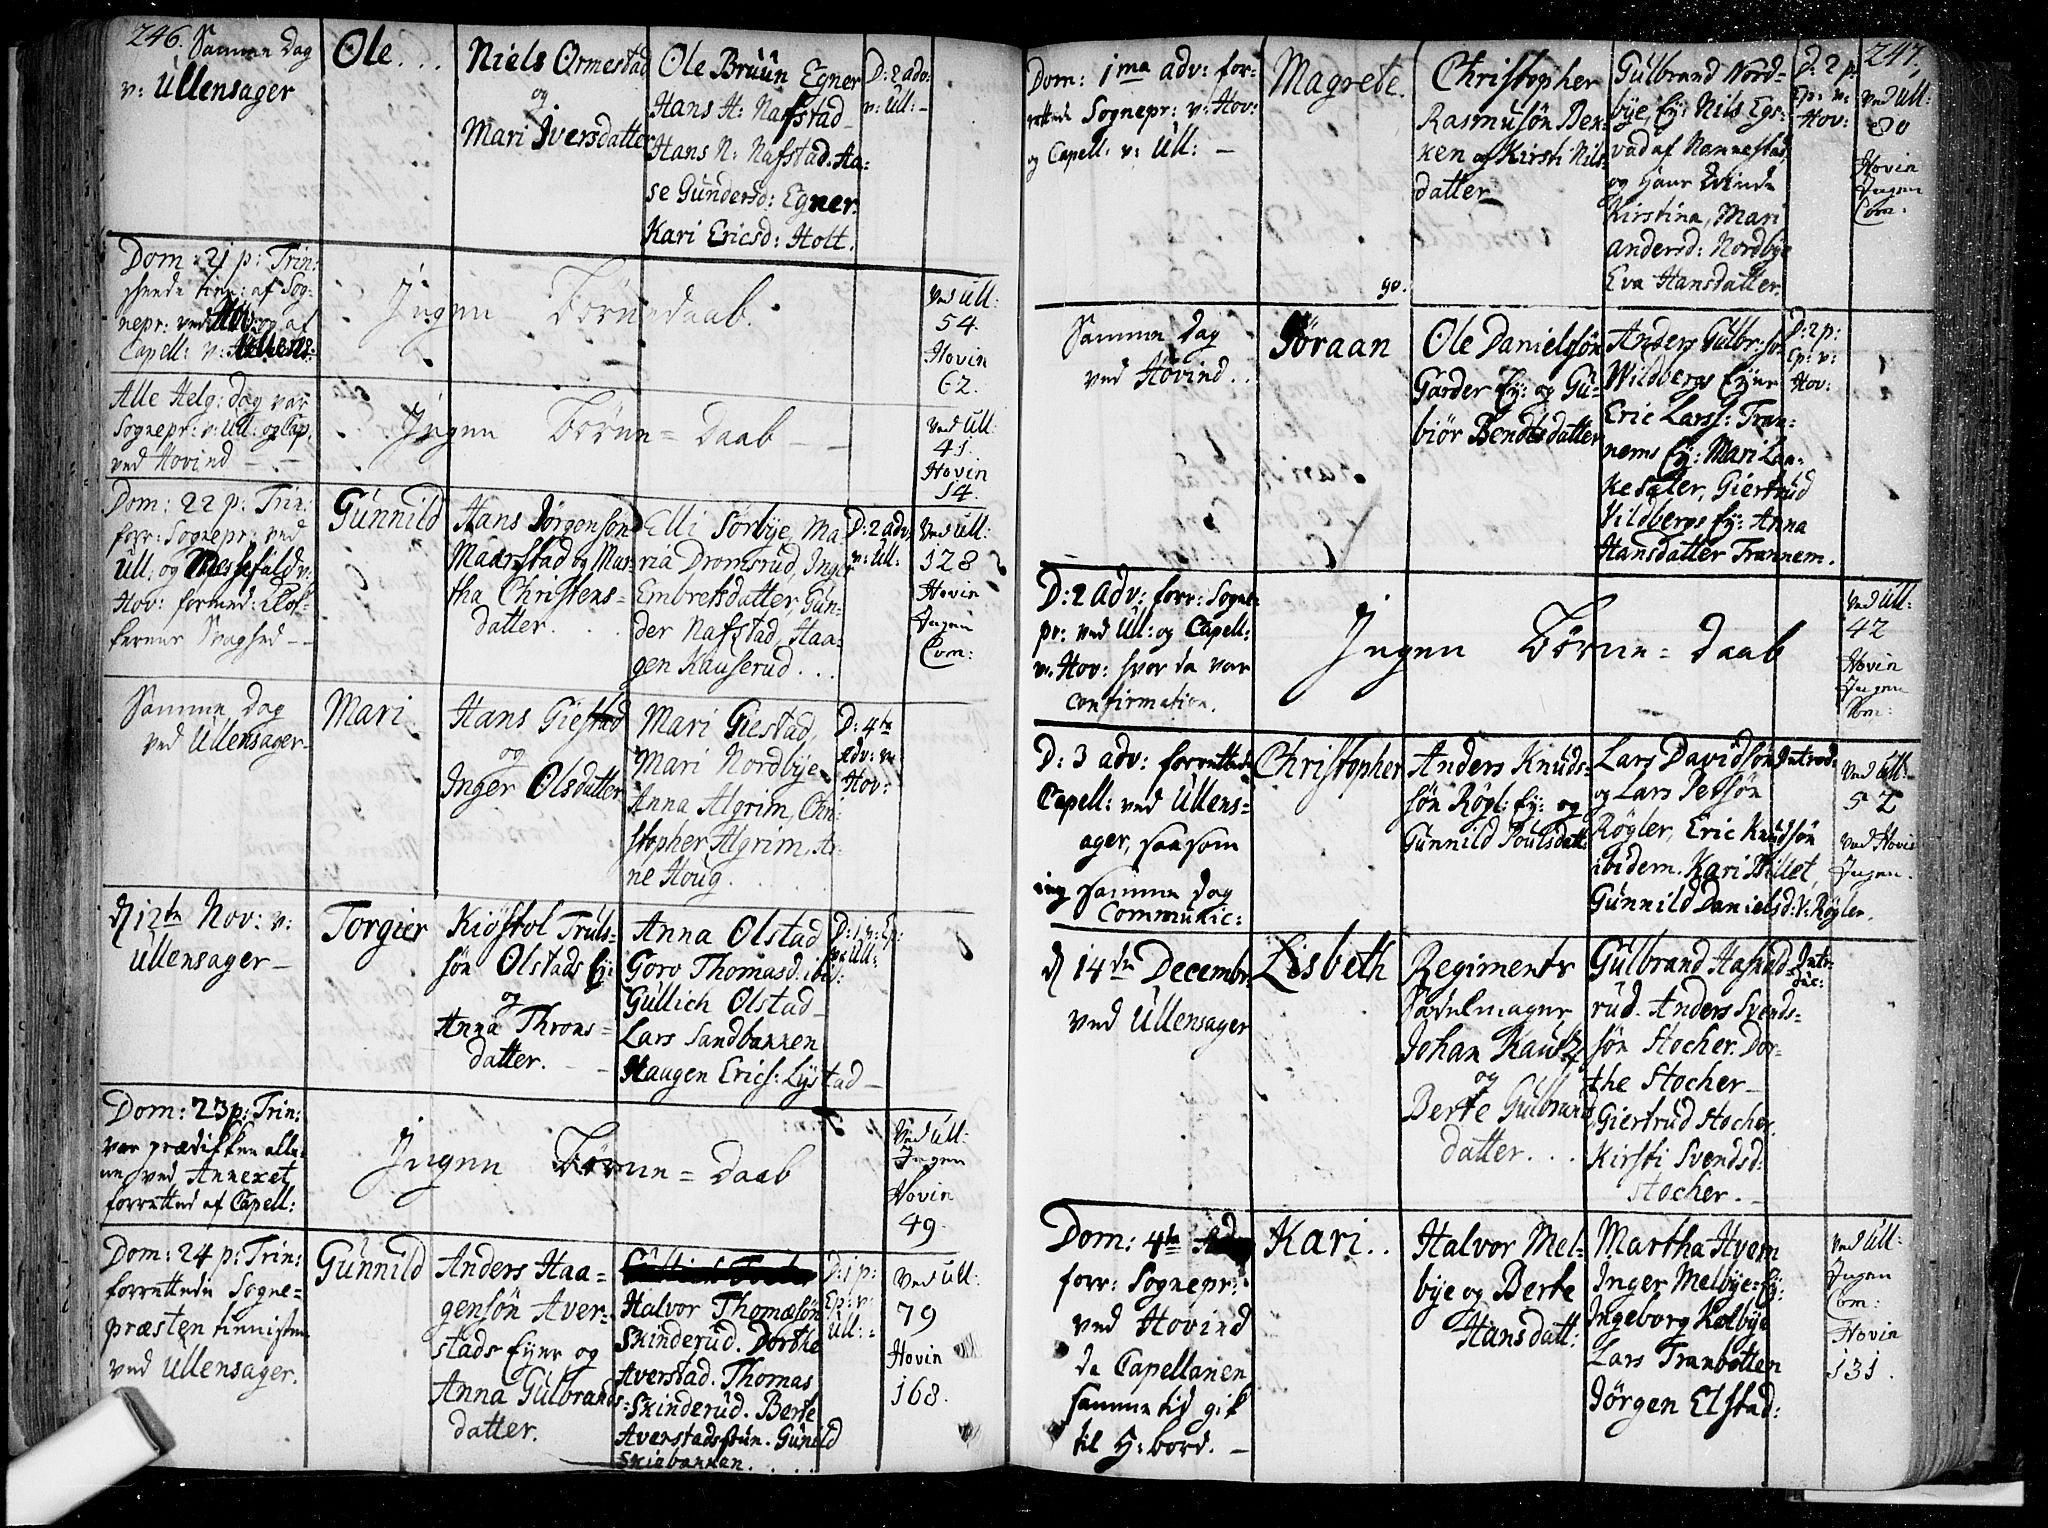 246.
Samme Dag
v: Ullensager
Ole...
Niels Ormestad
og
Mari Iversdatter
Ole Bruun Egner
Hans H: Nafstad
Hans N: Nafstad. Aa=
se Gundersd: Egner.
Kari Ericsd: Holt.
D: 2 adv:
v: Ull: –
Dom: 21 p: Trin:
af Sog=
nepr: ved Hov: og af
Capell: v: Ullens:
Ingen Börnedaab.
ved Ull:
54.
Hovin
62.
Alle Helg: Dag var
Sognepr: v: Ull: og Cap.
ved Hovind – –
Ingen Börne = Daab – –
ved Ull:
41.
Hovin
14.
Dom: 22 p: Trin:
forr: Sognepr: ved
Ull: og Messefald v:
Hov: formed: Klok=
kerens Svaghed – –
Gunnild
Hans Jörgensön
Maarstad og Mar=
tha Christens=
datter. . .
Elli Sörbye, Ma=
ria Dromsrud, Inger
Embretsdatter, Gun=
der Nafstad, Haa=
gen Kauserud . . .
D: 2 adv:
v: Ull:
ved Ull:
128
Hovin
Ingen
Com:
Samme Dag
ved Ullensager
Mari
Hans Giestad
og
Inger Olsdatter
Mari Giestad,
Mari Nordbye
Anna Algrim, Chri=
stopher Algrim, Ar=
ne Houg.
D: 4te
Adv: v:
Hov:
d 12te Nov: v:
Ullensager –
Torgier
Kiöstol Truls=
sön Olstads Ey:
og
Anna Throns=
datter. – –
Anna Olstad
Goro Thomasd: ibid:
Gullich Olstad
Lars Sandbakken
Haugen Erics: Lystad –
D: 1 p: Ep:
v: Ull:
Dom: 23 p: Trin:
var prædikken alle=
ne ved Annexet,
forretted af Capell:
Ingen Börne = Daab
ved Ull:
Ingen
Hovin
49.
Dom: 24 p: Trin:
forrettede Sogne=
præsten tienisten
ved Ullensager.
Gunnild
Anders Haa=
gensön Aver=
stads Eyer og
Anna Gulbrands=
datter.
Halvor Thomæsön
Skinderud. Dorthe
Averstad. Thomas
Skinderud. Berte
Averstadstun. Gunild
Skiebakken. . . .
D: 1 p:
Ep: v:
Ull: =
ved Ull:
79
Hovin
168.
247.
Dom: 1ma adv: for=
rettede Sognepr: v: Hov:
og Capell: v: Ull: –
Magrete.
Christopher
Rasmusön Bek=
ken og Kirsti Nils
datter
Gulbrand Nord=
bye, Ey: Nils Egs=
vad af Nannestad
og hans Qvinde
Kirstina, Mari
Andersd: Nordbye
Eva Hansdatter.
D: 2 p:
Ep: v:
Hov:
ved Ull:
80
Hovin
Ingen
Com:
90.
Samme Dag
ved Hovind..
Söraan
Ole Danielsön
Garder Ey: og Gu=
biör Bendtsdatter
Anders Gulbr: sön
Wildbergs Eyer
Eric Larss: Tran=
nems Ey: Mari Laa=
kesæter, Giertrud
Vildbergs Ey: Anna
Hansdatter Trannem.
D: 2 p:
Ep: v:
Hov:
D: 2 adv: forr: Sogne=
pr: ved Ull: og Capell:
v. Hov: hvor da var
Confirmation.
Ingen Börne = Daab
ved Ull:
42
Hovin
Ingen
Kom:
D: 3 adv: forrettede
Capell: ved Ullens=
ager, saasom
ing Samme Dag
Communic:
Christopher
Anders Knuds=
sön Rögl: Ey: og
Gunnild Poulsdatt:
Lars Davidsön
og Lars Persön
Rögler, Eric Knudsön
ibidem. Kari Willet,
Gunnild Danielsd: v: Rögler.
Introd:
ved Ull:
52
ved Hovin
Ingen.
d 14de Decembr.
ved Ullensager
Lisbeth
Regiments
Sadelmager
Johan Kautz
og
Berte Gulbrands
datter. . .
Gulbrand Hasnad=
rud. Anders Svends=
sön Stocher. Dor=
the Stocher –
Giertrud Stocher.
Kirsti Svendsd:
Stocher. –
Intro=
duc:
Dom: 4te Adv
forr: Sognepr:
ved Hovind
da Capellanen
samme tid gik
til H: bord. –
Kari..
Halvor Mel=
bye og Berte
Hansdatt:
Martha Hvem
Inger Melbye=Ey:
Ingeborg Kolbye
Lars Tranbotten
Jörgen Elstad:
ved Ull:
Ingen
Com:
Hovin
131.